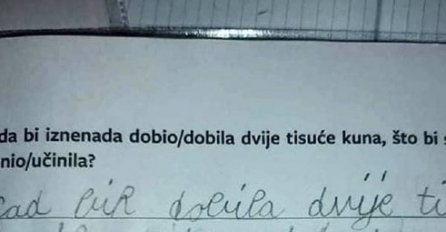 da bi iznenada dobio/dobila dvije tisuće kuna, što bi s
nio/učinila?
kad bih dobila dvije ti